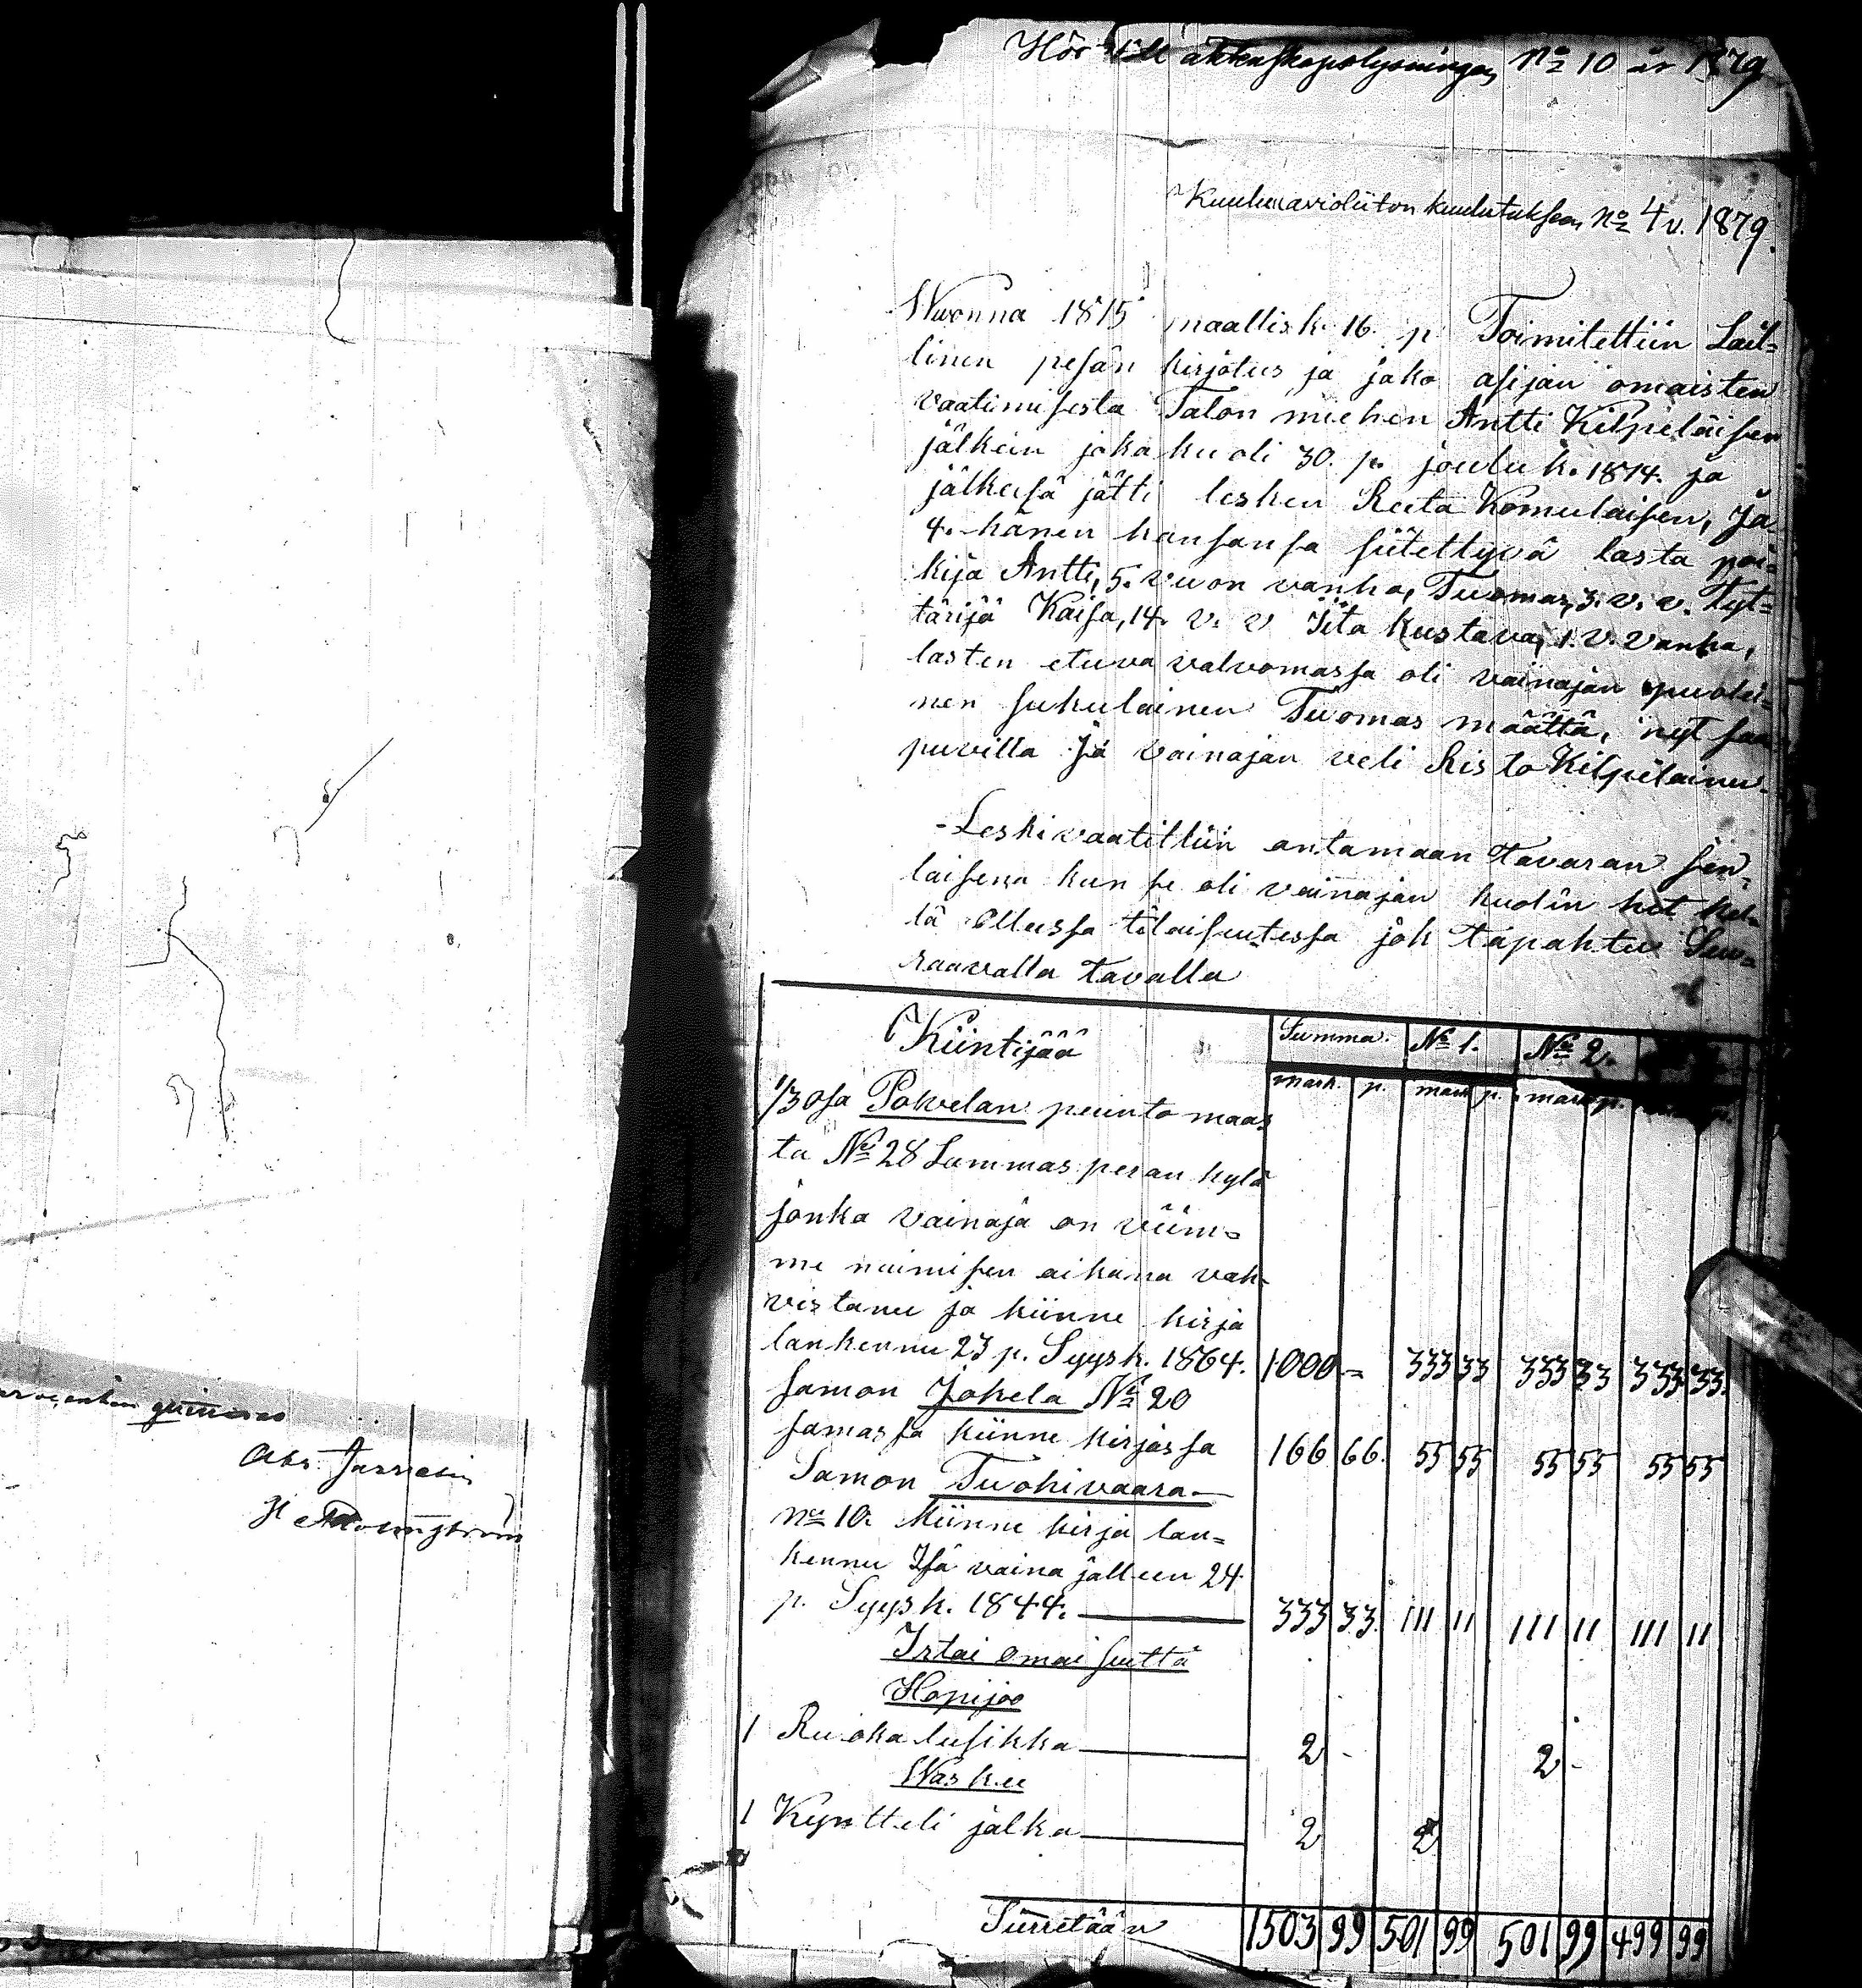 Hör till äktenskapslysningen No 10 år 1879
Kuuluu avioliiton kuulutukseen No 4 v. 1879.
Wuonna 1875 maallisk. 16. p. Toimitettiin Lail=
linen pesän kirjotus ja jako asijan omaisten
vaatimisesta Talon miehen Antti Kilpeläisen
jälkein joka kuoli 30. p. jouluk. 1874. ja
jälkeesä jätti lesken Reeta Komulaisen, Ja
4. hänen kansansa siitettyvä lasta poi=
kija Antti, 5. vuon vanha, Tuomas, 3. v. v. Tyt=
tärijä Kaisa, 14. v. v Iita kustava, 1. v. vanha,
lasten etuva valvomassa oli vainajan puoli=
nen sukulainen Tuomas määttä, nyt saa
puvilla ja vainajan veli Risto Kilpeläinen.
- Leski vaatittiin antamaan Tavaran sen
laisena kun se oli vainajan kuolin het kel=
lä ollessa tilaisuutessa jok tapahtu Seu=
raavalla tavalla
Kiintijää
Summa. No 1. No 2.
mark. p. mark p. mark p.
1/3 osa Polvelan perinto maas
ta No 28 Lammasperan kylä
jonka vainaja on viim=
me naimisen aikana vah=
vistanu ja kiinne kirja
lankennu 23 p. Syysk. 1864. 1000 - 333 33 333 33 333 33
samon Jokela No 20
samassa kiinne kirjassa 166 66. 55 55 55 55 55 55
Samon Tuohivaara
No 10. kiinne kirja lan=
kennu Isä vaina jälkeen 24
p. Syysk. 1844. 333 33. 111 11 111 11 111 11
Irtai omaisutta
Hopijoo
1 Ruoka lusikka 2 - 2 -
Waskee
1 Kyntteli jalka 2 2
Siirretään 1503 99 501 99 501 99 499 99